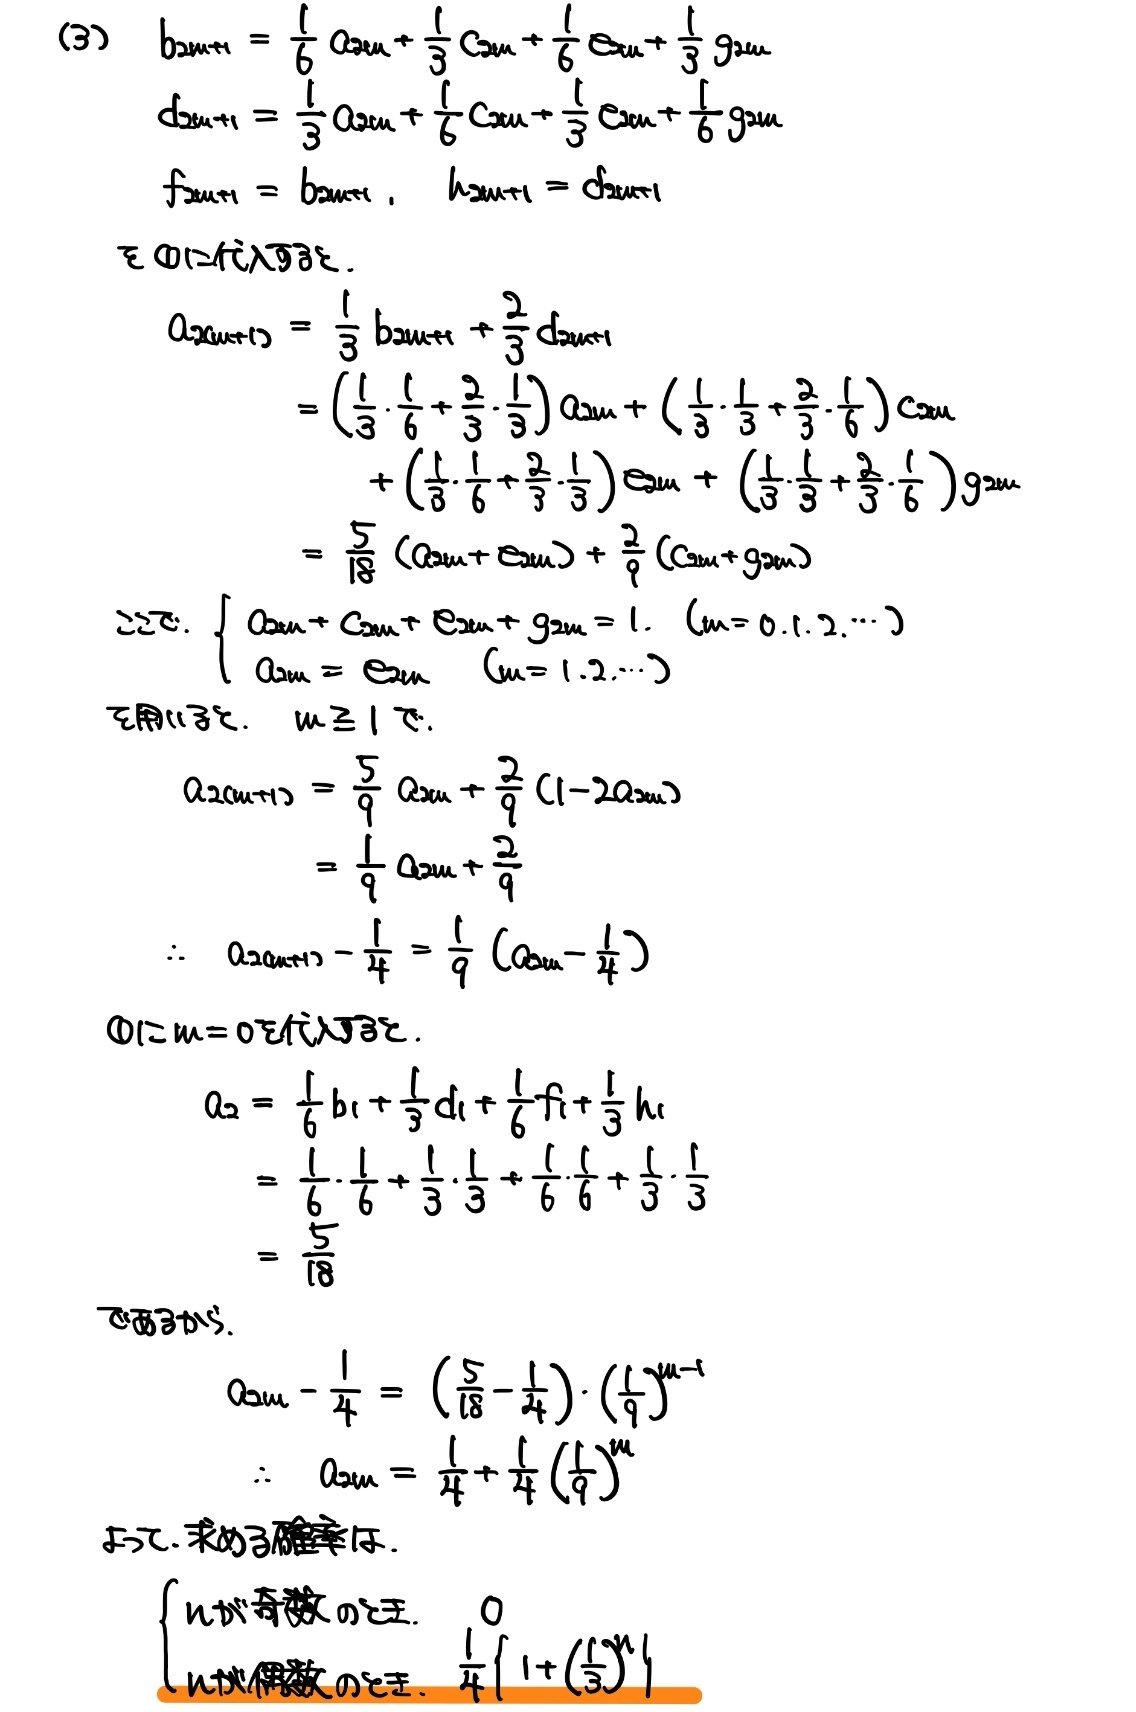 (3) b₂ₘ₊₁ = 1/6 a₂ₘ + 1/3 c₂ₘ + 1/6 e₂ₘ + 1/3 g₂ₘ
d₂ₘ₊₁ = 1/3 a₂ₘ + 1/6 c₂ₘ + 1/3 e₂ₘ + 1/6 g₂ₘ
f₂ₘ₊₁ = b₂ₘ₊₁, h₂ₘ₊₁ = d₂ₘ₊₁
を①に代入すると.
a₂₍ₘ₊₁₎ = 1/3 b₂ₘ₊₁ + 2/3 d₂ₘ₊₁
= (1/3・1/6 + 2/3・1/3) a₂ₘ + (1/3・1/3 + 2/3・1/6) c₂ₘ
+ (1/3・1/6 + 2/3・1/3) e₂ₘ + (1/3・1/3 + 2/3・1/6) g₂ₘ
= 5/18 (a₂ₘ + e₂ₘ) + 2/9 (c₂ₘ + g₂ₘ)
ここで. { a₂ₘ + c₂ₘ + e₂ₘ + g₂ₘ = 1. (m = 0.1.2.…)
a₂ₘ = e₂ₘ (m = 1.2.…)
を用いると. m ≧ 1 で.
a₂₍ₘ₊₁₎ = 5/9 a₂ₘ + 2/9 (1 − 2a₂ₘ)
= 1/9 a₂ₘ + 2/9
∴ a₂₍ₘ₊₁₎ − 1/4 = 1/9 (a₂ₘ − 1/4)
①に m = 0 を代入すると.
a₂ = 1/6 b₁ + 1/3 d₁ + 1/6 f₁ + 1/3 h₁
= 1/6・1/6 + 1/3・1/3 + 1/6・1/6 + 1/3・1/3
= 5/18
であるから.
a₂ₘ − 1/4 = (5/18 − 1/4)・(1/9)ᵐ⁻¹
∴ a₂ₘ = 1/4 + 1/4 (1/9)ᵐ
よって. 求める確率は.
{ nが奇数のとき. 0
nが偶数のとき. 1/4 { 1 + (1/3)ⁿ }